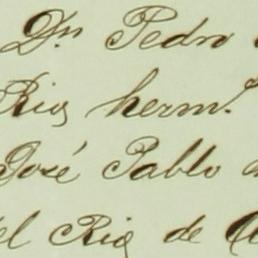 Dn Pedro
Rio herm.o
José Pablo
el Rio de